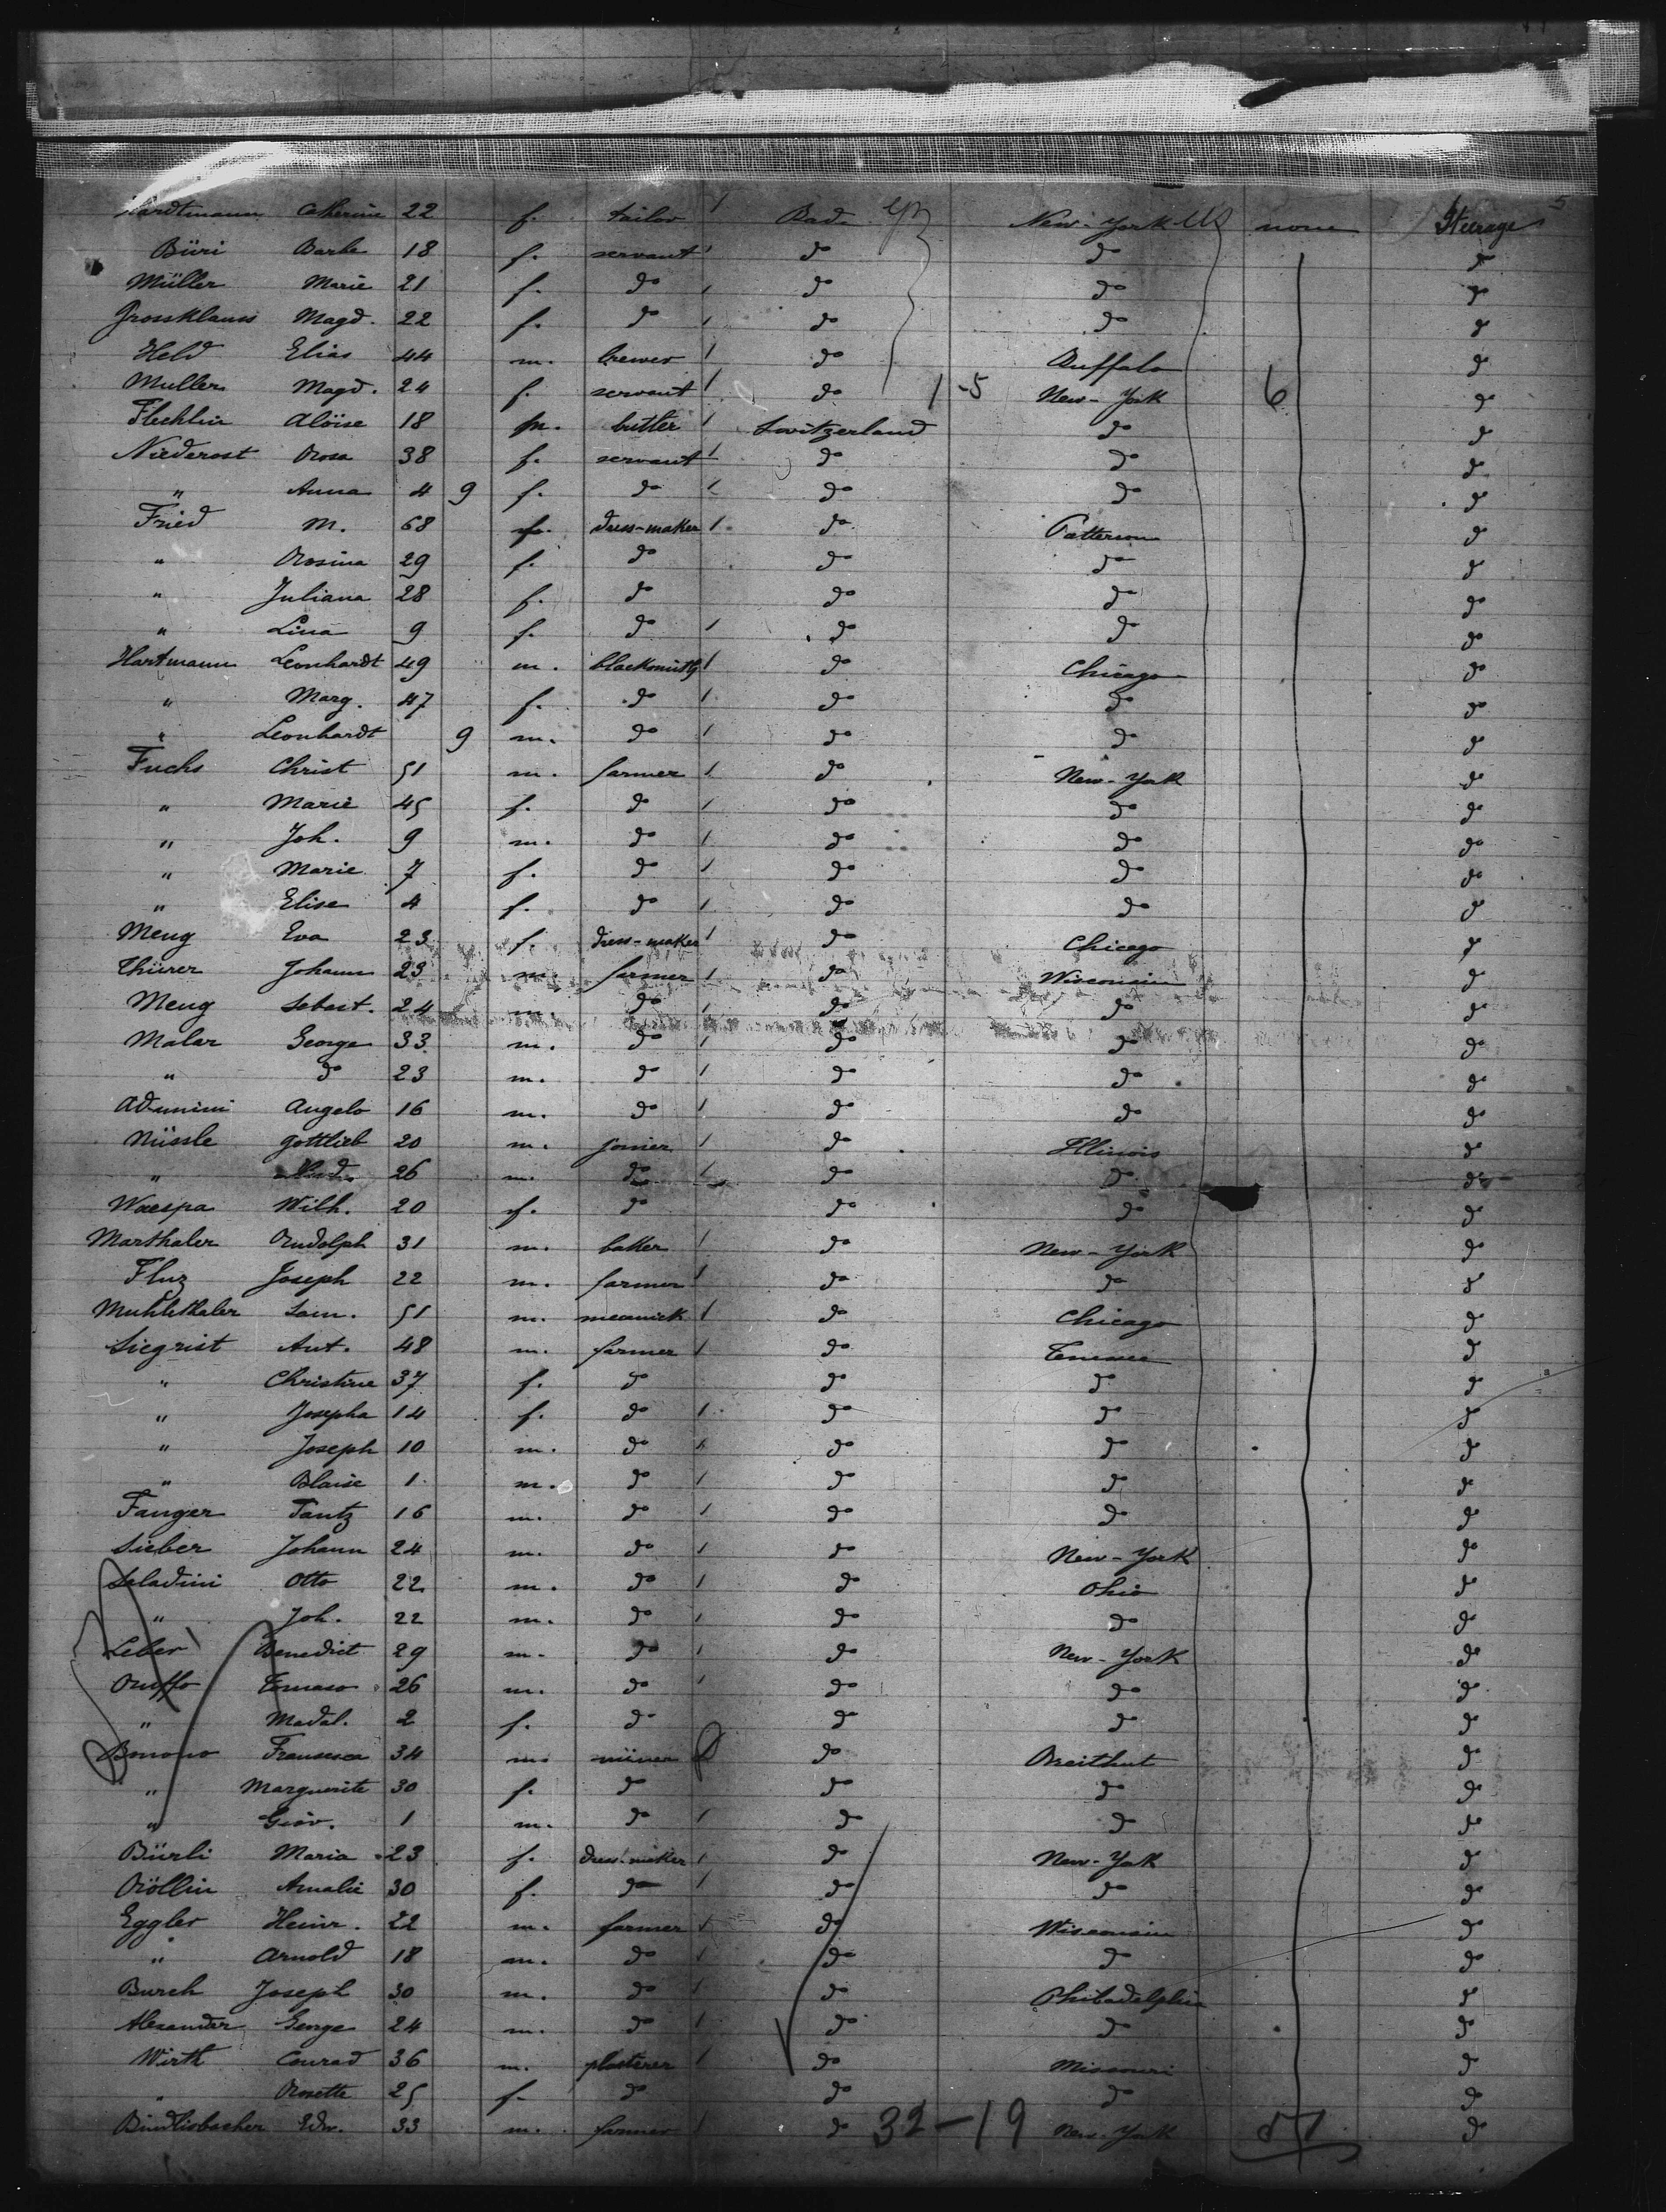 5
Hardtmann Catherine 22 f. tailor Bad New-York US none Steerage
Büri Barbe 18 f. servant do do do
Müller Marie 21 f. do do do do
Grossklauss Magd. 22 f. do do do do
Held Elias 44 m. brewer do Buffalo do
Muller Magd. 24 f. servant do 1-5 New-York 6 do
Flechlin Aloise 18 m. buttler Switzerland do do
Niederost Rosa 38 f. servant do do do
" Anna 4 9 f. do do do do
Fried M. 68 dress-maker do Patterson do
" Rosina 29 f. do do do do
" Juliana 28 f. do do do do
" Lina 9 f. do do do do
Hartmann Leonhardt 49 m. blacksmith do Chicago do
" Marg. 47 f. do do do do
" Leonhardt 9 m. do do do do
Fuchs Christ 51 m. farmer do New-York do
" Marie 45 f. do do do do
" Joh. 9 m. do do do do
" Marie 7 f. do do do do
" Elise 4 f. do do do do
Meng Eva 23 f. dress-maker do Chicago do
Thürer Johann 23 m. farmer do Wisconsin do
Meng Sebast. 24 m. do do do do
Malar George 33 m. do do do do
" do 23 m. do do do do
Angelo 16 m. do do do do
Nüssle Gottlieb 20 m. jonier do Illinois do
" 26 m. do do do do
Waespa Wilh. 20 f. do do do do
Marthaler Rudolph 31 m. baker do New-York do
Fluz Joseph 22 m. farmer do do do
Muhlethaler Sam. 51 m. mecanick do Chicago do
Siegrist Ant. 48 m. farmer do Tenessee do
" Christine 37 f. do do do do
" Josepha 14 f. do do do do
" Joseph 10 m. do do do do
" Blaise 1 m. do do do do
Fanger Tantz 16 m. do do do do
Sieber Johann 24 m. do do New-York do
Saladini Otto 22 m. do do Ohio do
" Joh. 22 m. do do do do
Leber Benedict 29 m. do do New-York do
Ruffo Tomaso 26 m. do do do do
" Madal. 2 f. do do do do
Bonono Fransesca 34 m. miner do Breithut do
" Marguerite 30 f. do do do do
" Giov. 1 m. do do do do
Bürli Maria 23 f. dress-maker do New-York do
Röllin Amalie 30 f. do do do do
Eggler Heinr. 22 m. farmer do Wisconsin do
" Arnold 18 m. do do do do
Burch Joseph 30 m. do do Philadelphia do
Alexander George 24 m. do do do do
Wirth Conrad 36 m. plasterer do Missouri do
" Rosette 25 f. do do do do
Bindlisbacher Edw. 33 m. farmer do 32-19 New-York 51 do